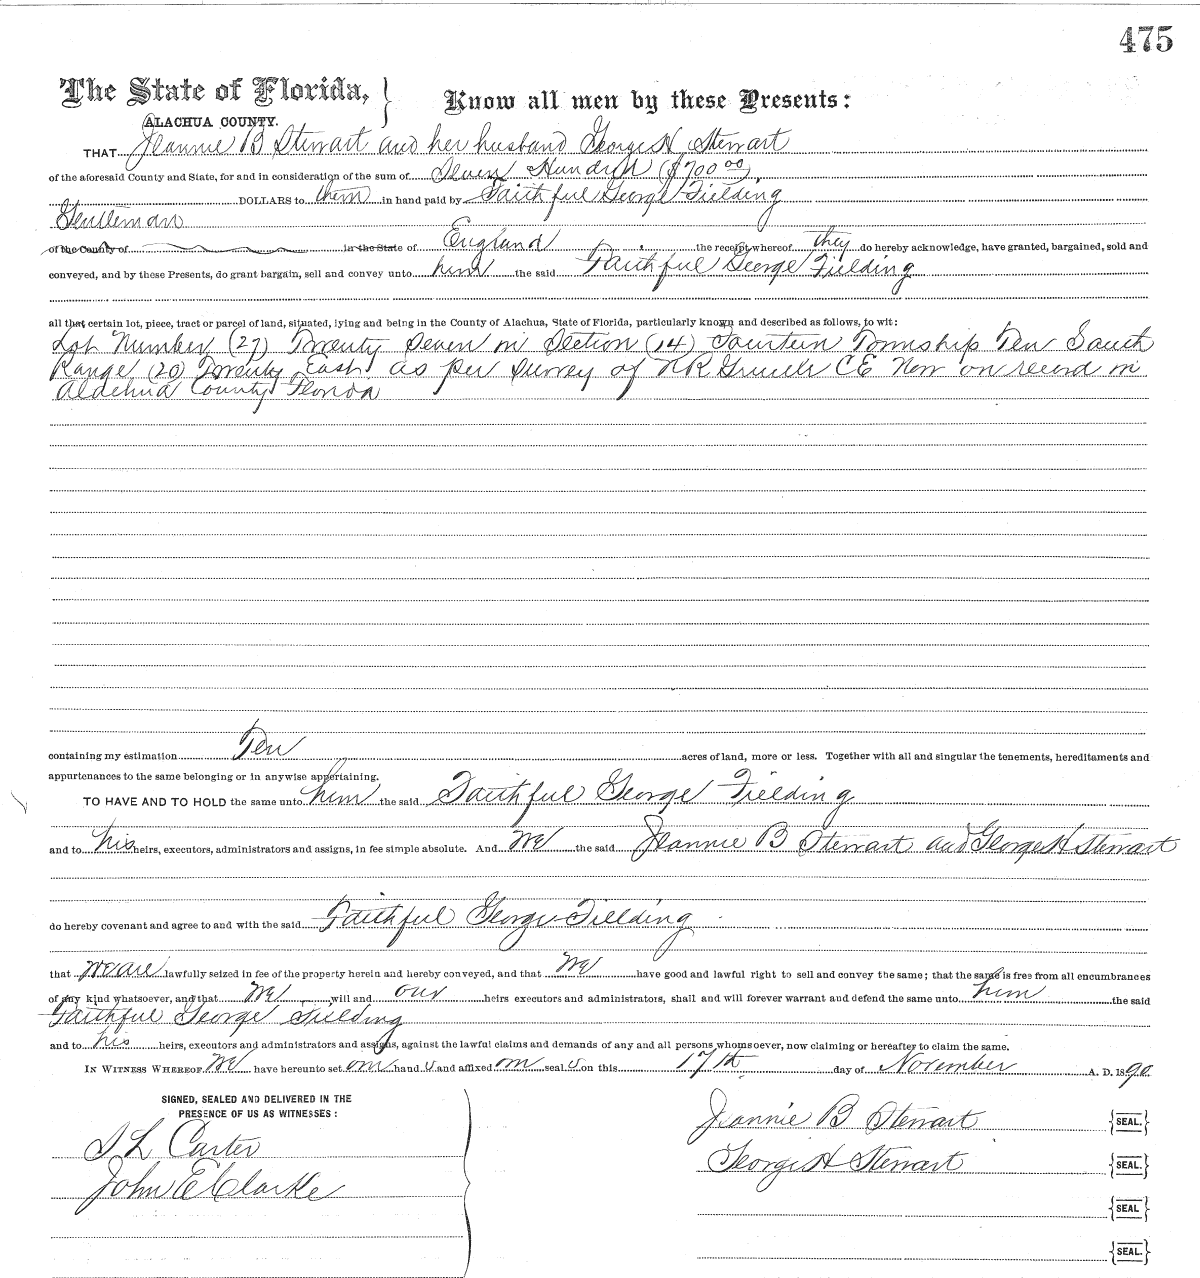 475
The State of Florida,
Know all men by these Presents:
ALACHUA COUNTY.
THAT Jeannie B Stewart and her husband George H Stewart
of the aforesaid County and State, for and in consideration of the sum of Seven Hundred ($700.00)
DOLLARS to them in hand paid by Faithful George Fielding
Gentleman
of the County of in the State of England the receipt whereof they do hereby acknowledge, have granted, bargained, sold and
conveyed, and by these Presents, do grant bargain, sell and convey unto him the said Faithful George Fielding
all that certain lot, piece, tract or parcel of land, situated, lying and being in the County of Alachua, State of Florida, particularly known and described as follows, to wit:
Lot Number (27) Twenty Seven in Section (14) Fourteen Township Ten South
Range (20) Twenty East as per Survey of CE Now on record in
Alachua County Florida
containing my estimation Ten acres of land, more or less. Together with all and singular the tenements, hereditaments and
appurtenances to the same belonging or in anywise appertaining.
TO HAVE AND TO HOLD the same unto him the said Faithful George Fielding
and to his heirs, executors, administrators and assigns, in fee simple absolute. And We the said Jeannie B Stewart and George H Stewart
do hereby covenant and agree to and with the said Faithful George Fielding
that we are lawfully seized in fee of the property herein and hereby conveyed, and that We have good and lawful right to sell and convey the same; that the same is free from all encumbrances
of any kind whatsoever, and that We will and our heirs executors and administrators, shall and will forever warrant and defend the same unto him the said
Faithful George Fielding
and to his heirs, executors and administrators and assigns, against the lawful claims and demands of any and all persons whomsoever, now claiming or hereafter to claim the same.
IN WITNESS WHEREOF We have hereunto set our hand s and affixed our seal s on this 17th day of November A. D. 1890
SIGNED, SEALED AND DELIVERED IN THE
PRESENCE OF US AS WITNESSES:
Jeannie B Stewart SEAL.
S L Carter
George H Stewart SEAL.
John E Clarke
SEAL
SEAL.